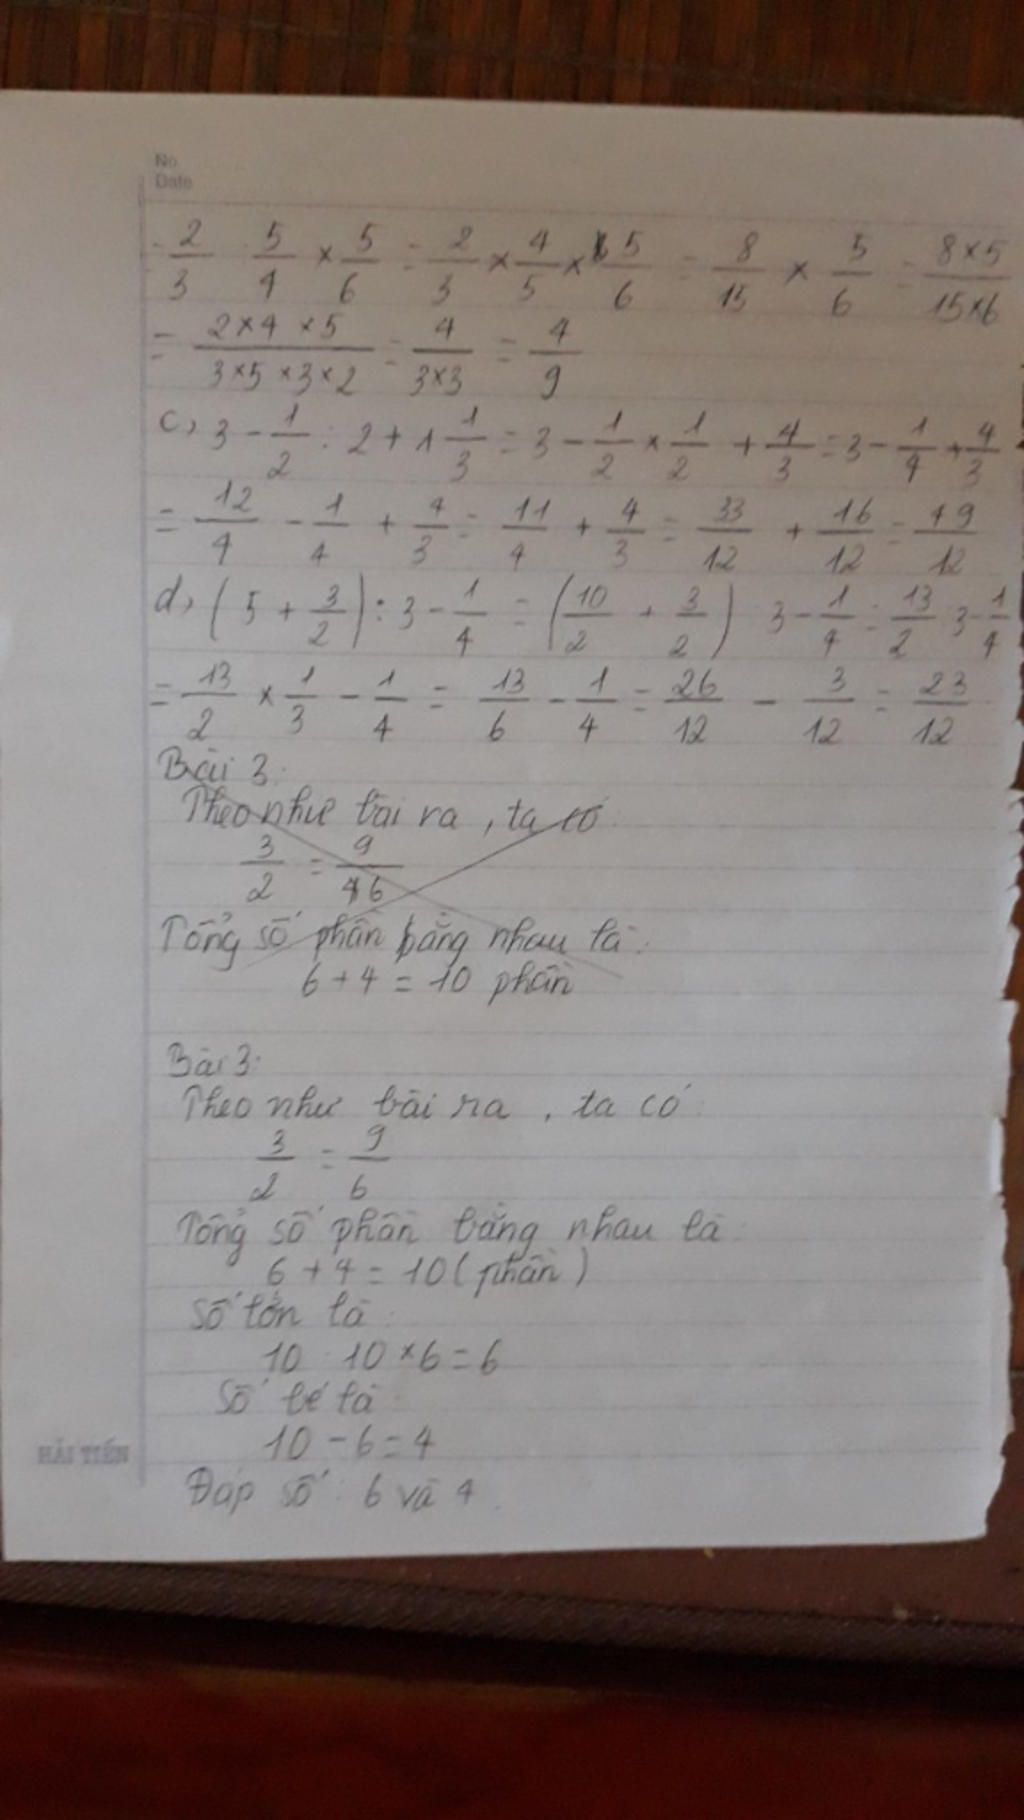 No
Date
= 2/3 : 5/4 × 5/6 = 2/3 × 4/5 × 5/6 = 8/15 × 5/6 = 8×5/15×6
= 2×4×5/3×5×3×2 = 4/3×3 = 4/9
c, 3 - 1/2 : 2 + 1 1/3 = 3 - 1/2 × 1/2 + 4/3 = 3 - 1/4 + 4/3
= 12/4 - 1/4 + 4/3 = 11/4 + 4/3 = 33/12 + 16/12 = 49/12
d, (5 + 3/2) : 3 - 1/4 = (10/2 + 3/2) : 3 - 1/4 = 13/2 : 3 - 1/4
= 13/2 × 1/3 - 1/4 = 13/6 - 1/4 = 26/12 - 3/12 = 23/12
Bài 3:
Theo như bài ra, ta có:
3/2 = 9/6
Tổng số phần bằng nhau là:
6 + 4 = 10 phần
Bài 3:
Theo như bài ra, ta có:
3/2 = 9/6
Tổng số phần bằng nhau là:
6 + 4 = 10 (phần)
Số lớn là:
10 : 10 × 6 = 6
Số bé là:
10 - 6 = 4
Đáp số: 6 và 4.
HẢI TIẾN